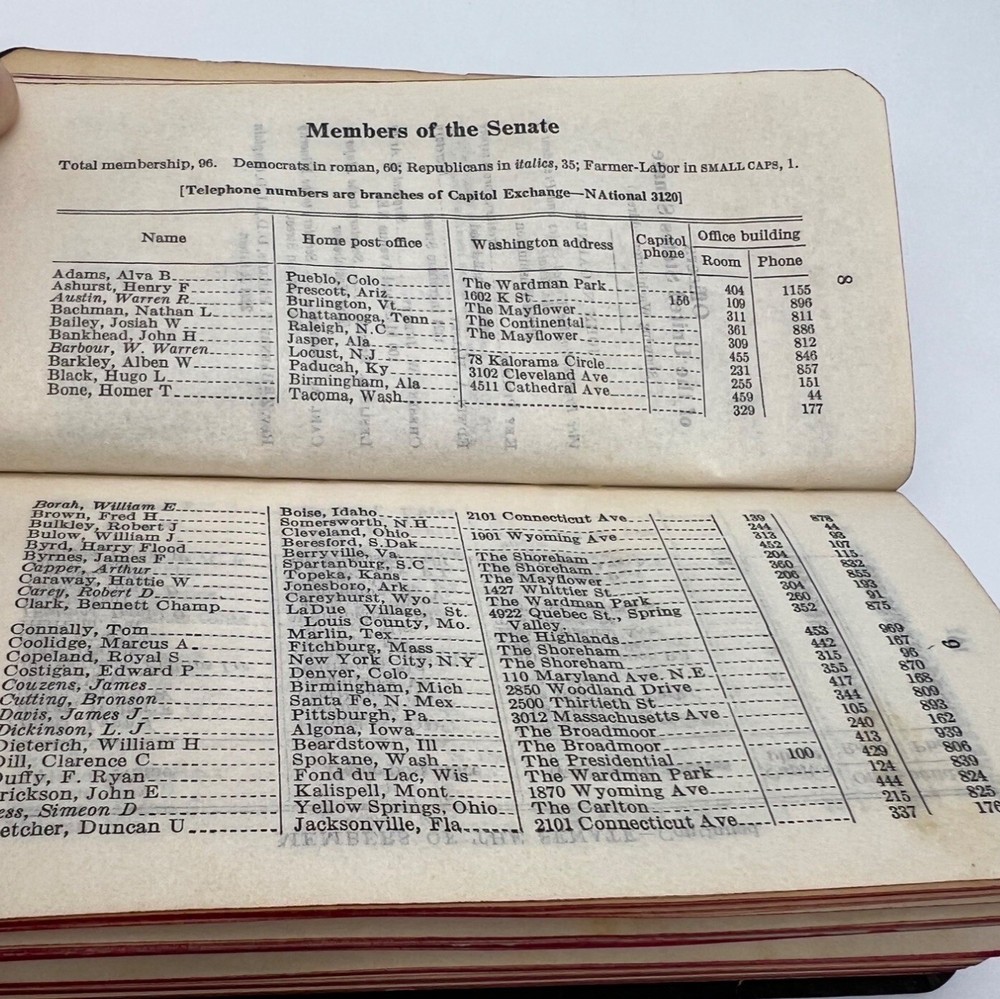 Members of the Senate
Total membership, 96. Democrats in roman, 60; Republicans in italics, 35; Farmer-Labor in SMALL CAPS, 1.
[Telephone numbers are branches of Capitol Exchange—NAtional 3120]
Name Home post office Washington address Capitol phone Office building
Room Phone
Adams, Alva B Pueblo, Colo The Wardman Park 404 1155
Ashurst, Henry F Prescott, Ariz 1602 K St 156 109 896
Austin, Warren R Burlington, Vt The Mayflower 311 811
Bachman, Nathan L Chattanooga, Tenn The Continental 361 886
Bailey, Josiah W Raleigh, N.C The Mayflower 309 812
Bankhead, John H Jasper, Ala 455 846
Barbour, W. Warren Locust, N.J 78 Kalorama Circle 231 857
Barkley, Alben W Paducah, Ky 3102 Cleveland Ave 255 151
Black, Hugo L Birmingham, Ala 4511 Cathedral Ave 459 44
Bone, Homer T Tacoma, Wash 329 177
8
Borah, William E Boise, Idaho 2101 Connecticut Ave 139 878
Brown, Fred H Somersworth, N.H 244 44
Bulkley, Robert J Cleveland, Ohio 1901 Wyoming Ave 313 93
Bulow, William J Beresford, S.Dak 452 107
Byrd, Harry Flood Berryville, Va The Shoreham 115
Byrnes, James F Spartanburg, S.C The Shoreham 360 832
Capper, Arthur Topeka, Kans The Mayflower 206 855
Caraway, Hattie W Jonesboro, Ark 1427 Whittier St 304 193
Carey, Robert D Careyhurst, Wyo The Wardman Park 260 91
Clark, Bennett Champ LaDue Village, St. 4922 Quebec St., Spring 352 875
Louis County, Mo. Valley.
Connally, Tom Marlin, Tex The Highlands 453 969
Coolidge, Marcus A. Fitchburg, Mass The Shoreham 442 167
Copeland, Royal S New York City, N.Y The Shoreham 315 96
Costigan, Edward P Denver, Colo 110 Maryland Ave. N.E 355 870
Couzens, James Birmingham, Mich 2850 Woodland Drive 417 168
Cutting, Bronson Santa Fe, N. Mex 2500 Thirtieth St 344 809
Davis, James J Pittsburgh, Pa 3012 Massachusetts Ave 105 893
Dickinson, L. J Algona, Iowa The Broadmoor 240 162
Dieterich, William H Beardstown, Ill The Broadmoor 413 939
Dill, Clarence C Spokane, Wash The Presidential 100 429 806
uffy, F. Ryan Fond du Lac, Wis The Wardman Park 124 839
rickson, John E Kalispell, Mont 1870 Wyoming Ave 444 824
ess, Simeon D Yellow Springs, Ohio The Carlton 215 825
etcher, Duncan U Jacksonville, Fla 2101 Connecticut Ave 337 176
9